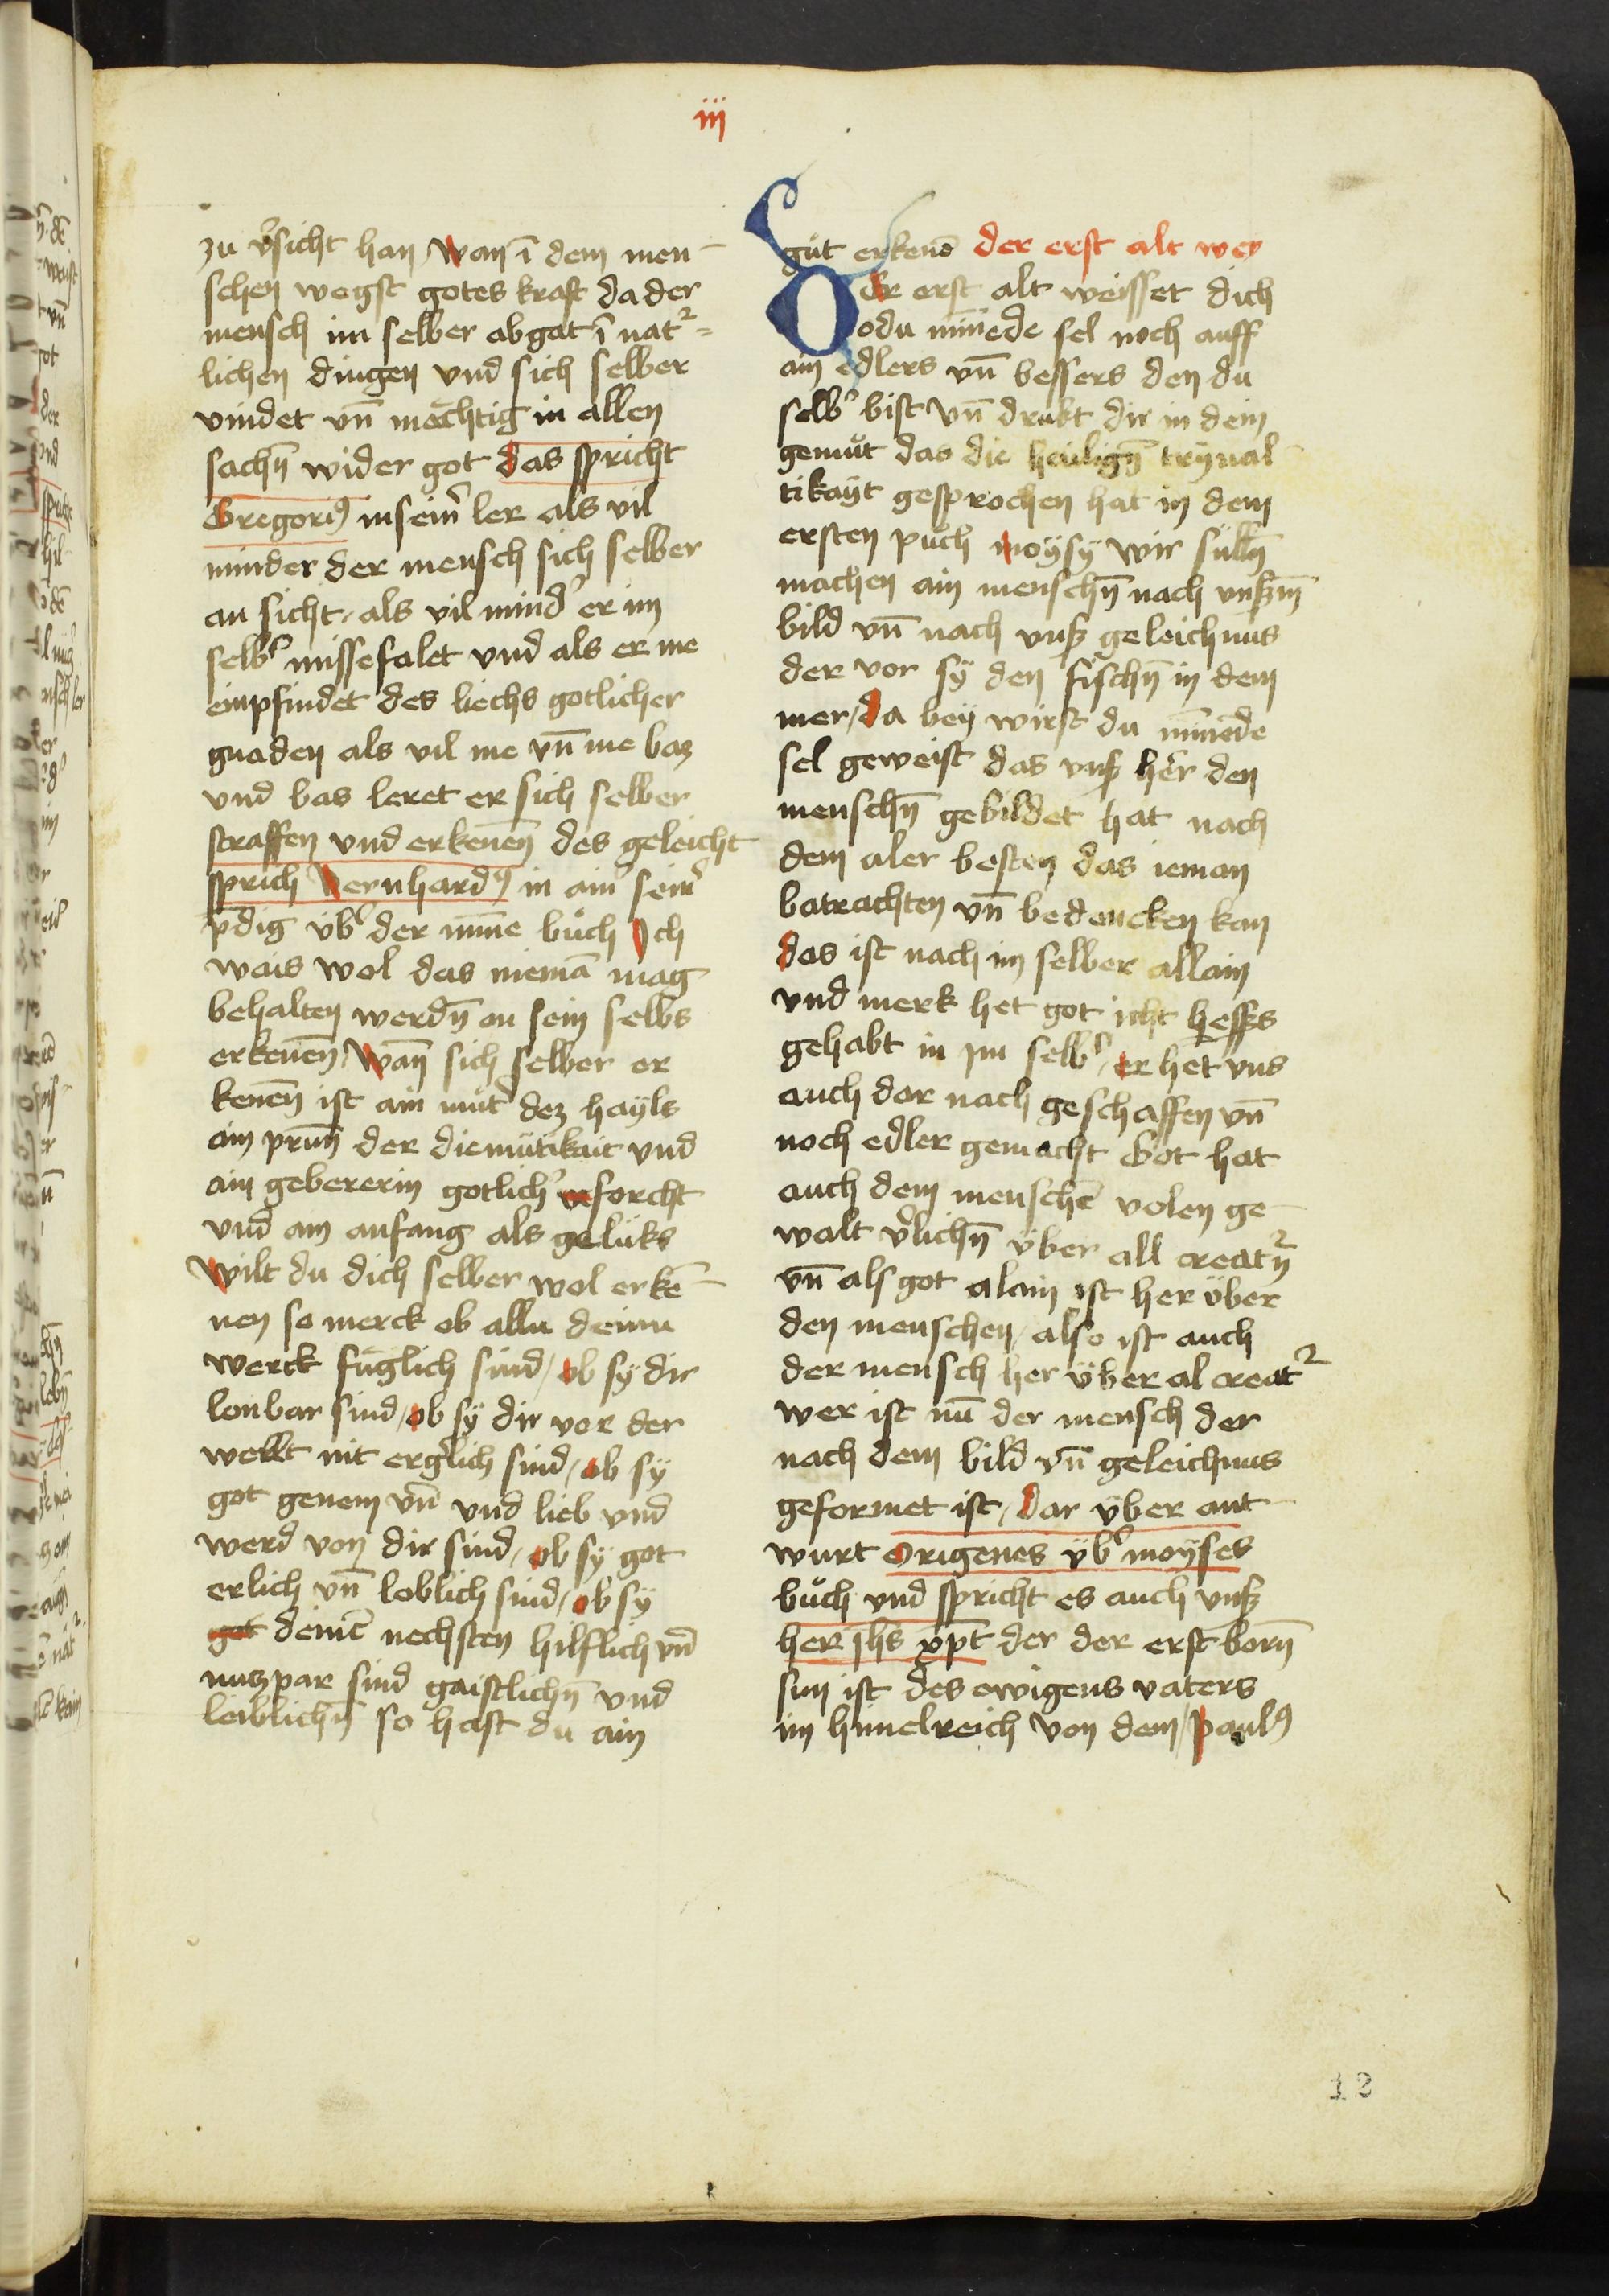 iij
zu v̾sicht han wan ī dem men-
schen wegst gotes kraft da der
mensch im selber abgat ī nat²=
lichen dingen und sich selber
vindet vn̄ mechtig in allen
sachn̄ wider got das spricht
Gregoriꝰ in sein̾ ler als vil
minder der mensch sich selber
an sicht / als vil mind̾ er im
selb̾ missefalet vnd als er me
empfindet des liechs gotlicher
gnaden als vil me vn̄ me baz
vnd bas leret er sich selber
straffen vnd erkenen̄ des geleicht
sprich Bernhardꝰ in ain̾ sein̾
p̄dig üb̾ der mīne bůch Ich
wais wol das niemā mag
behalten werdn̄ an sein selbs
erkenen̄ / Wan̄ sich selber er
kenen̄ ist ain můt̾ dez hayls
ain prun̄ der diemütikait vnd
ain gebererin gotlich̾ forcht
vnd ain anfang als gelüks
Wilt du dich selber wol erkē-
nen so merck ob allu deinu
werck fůglich sind / ob sÿ dir
lonbar sind / ob sÿ dir vor der
wellt nit erg̾lich sind / ob sÿ
got genem vn̄ vnd lieb vnd
werd von dir sind / ob sÿ got
erlich vn̄ loblich sind / ob sÿ
got deinē nechsten hilflich vn̄
nuczpar sind gaistlichn̄ vnd
leiblichn̄ so hast du ain
gůt erkenē der erst alt wey
Der erst alt weisset dich
o du mīnede sel noch auff
ain edlers vn̄ bessers den du
selb̾ bist vn̄ drukt dir in dein
gemůt das die heilign̄ trÿual-
tikaÿt gesprochen hat in dem
ersten půch moÿsÿ wir sülln̄
machen ain menschn̄ nach vnßm̄
bild vn̄ nach vnß geleichnus
der vor sÿ den fischn̄ in dem
mer / da beÿ wirst du mīnede
sel geweist das vnß her̄ den
menschn̄ gebildet hat nach
dem aler besten das ieman
batrachten vn̄ bedencken kan
das ist nach im selber allain
vnd merk het got icht beßers
gehabt in im selb̾ / er het vns
auch dar nach geschaffen vn̄
noch edler gemacht Got hat
auch dem menschē volen ge-
walt v̾lichn̄ über all creat²n̄
vn̄ als got alain ist her über
den menschen / also ist auch
der mensch her über al creat²
wer ist nu der mensch der
nach dem bild vn̄ geleichnus
geformet ist / dar über ant-
wurt Origenes üb̾ moÿses
bůch vnd spricht es auch vnß
her ihs xp̄t der der erst born̄
sun ist des ewigens vaters
im himelreich von dem / paulꝰ
12